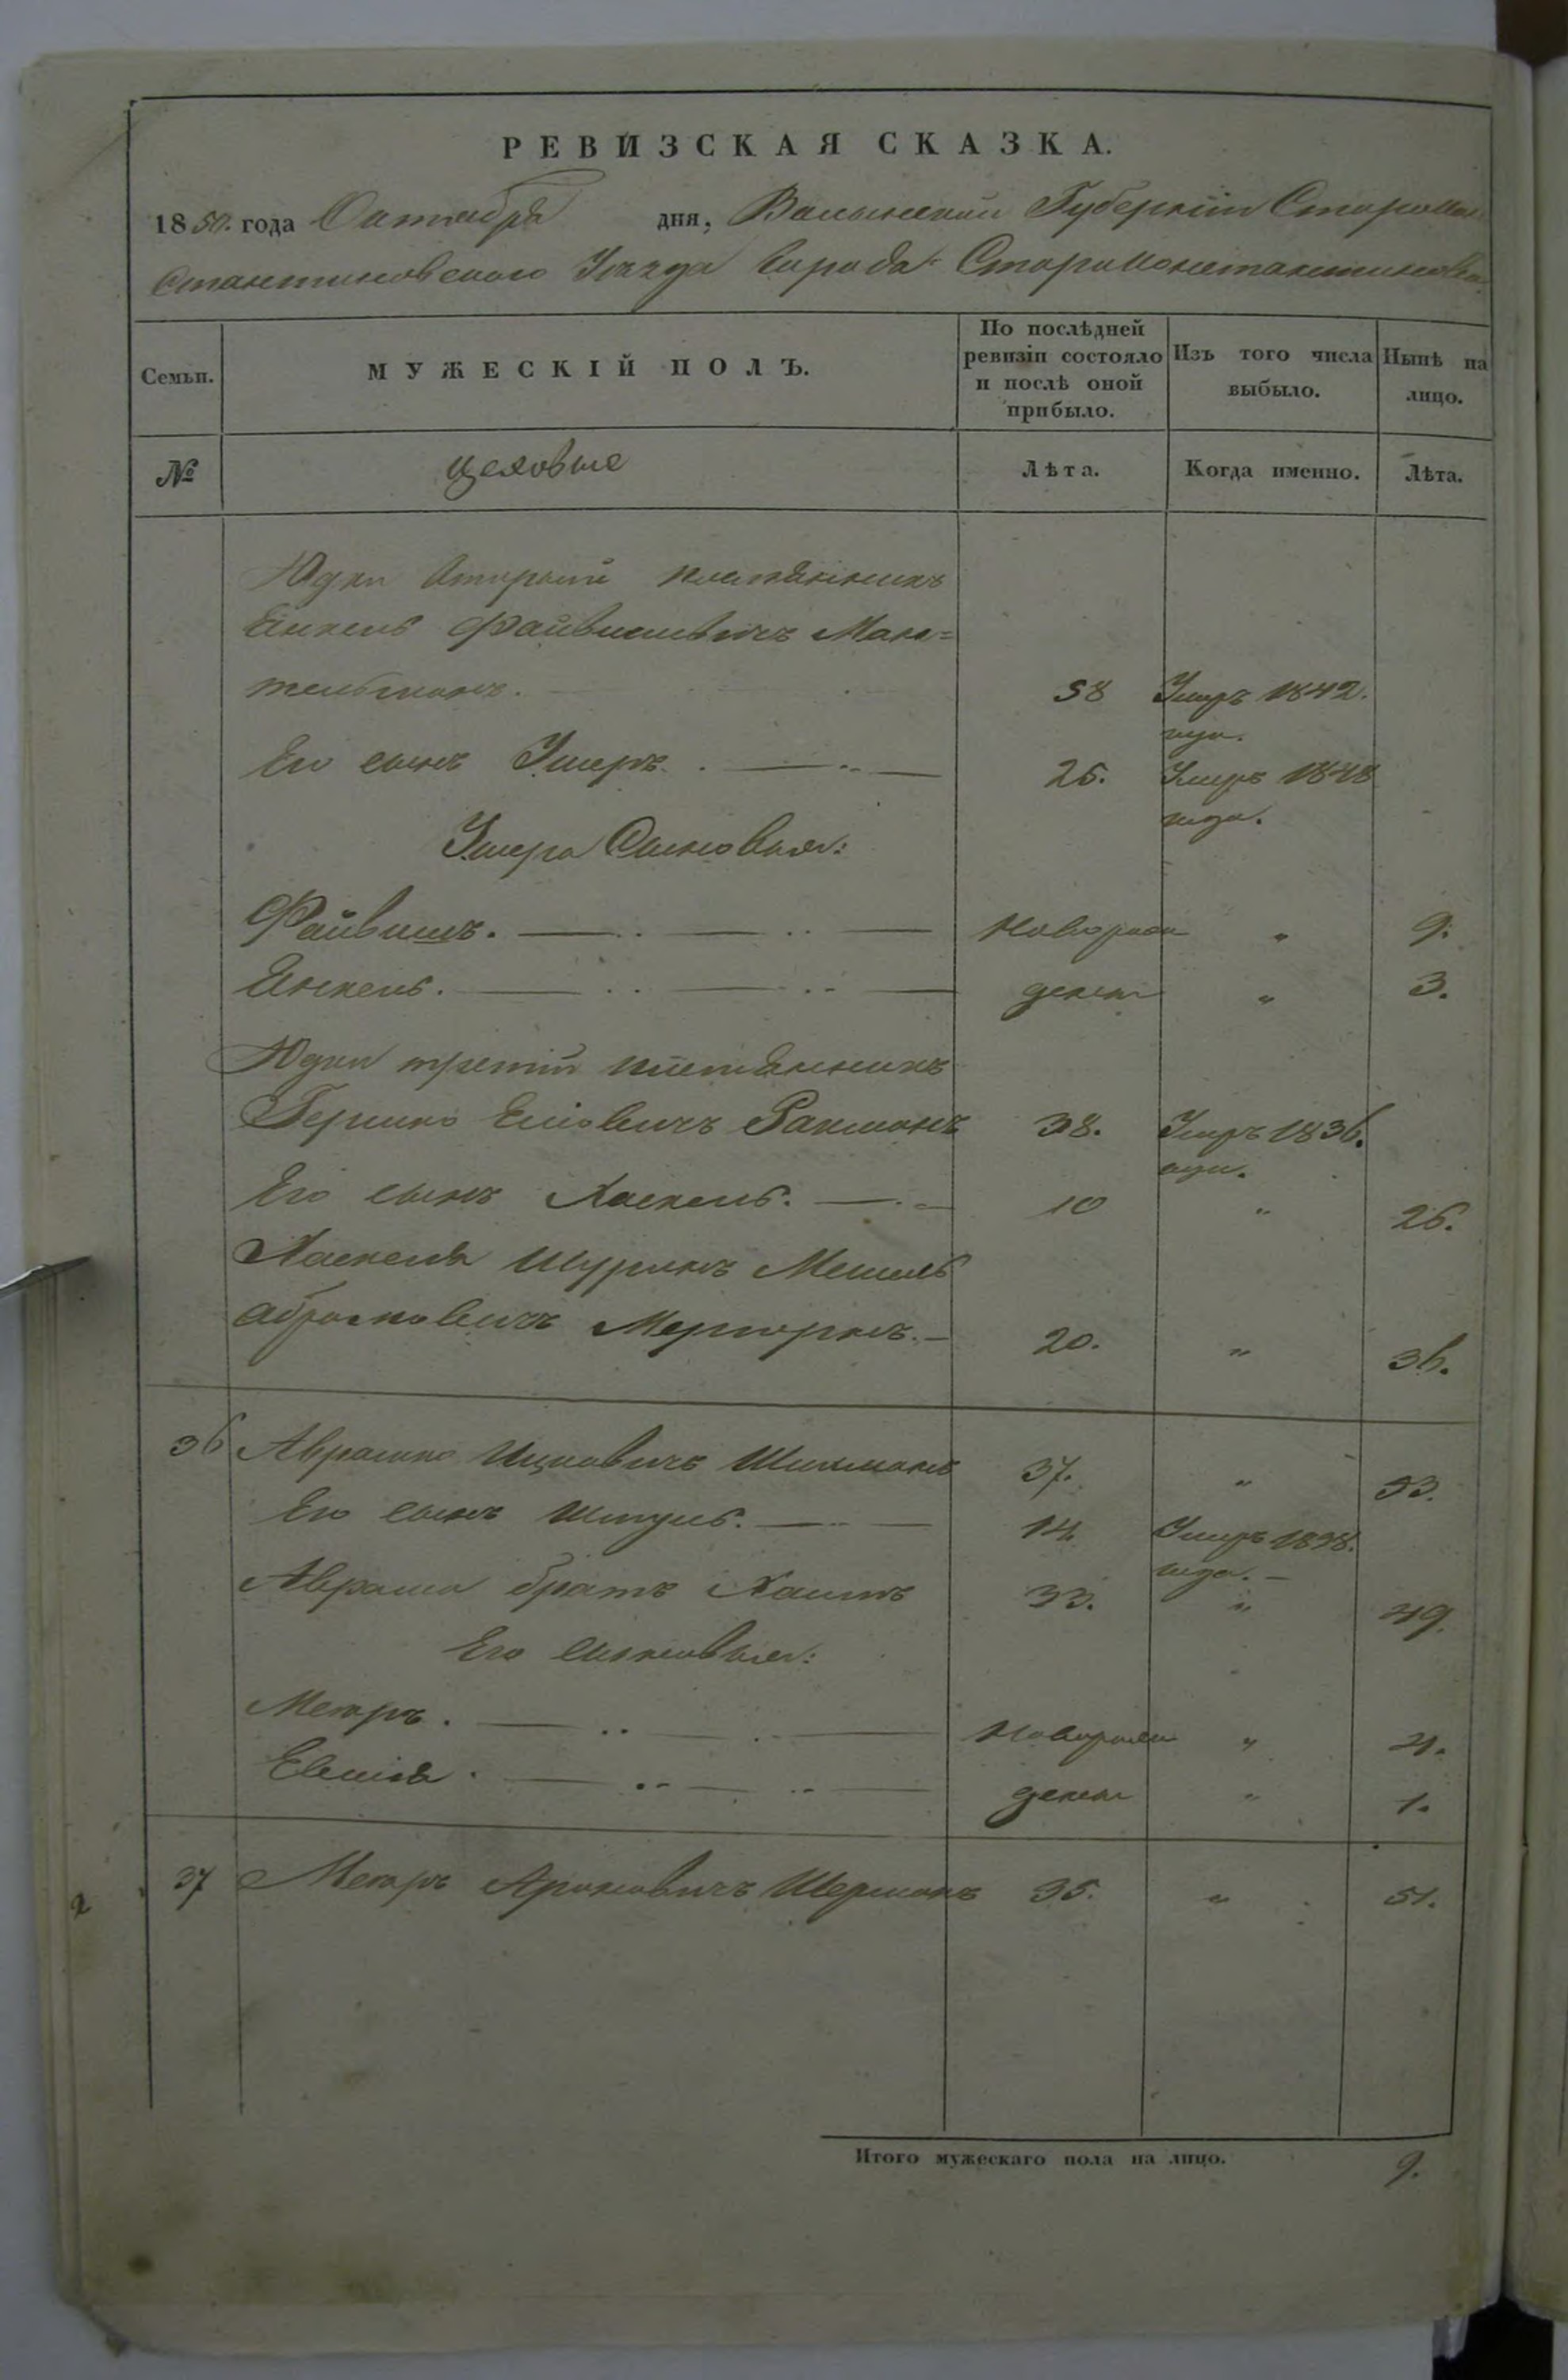 РЕВИЗСКАЯ СКАЗКА.
1850. года Октября дня, Волынской Губернии Старокон
стантиновского Уезда города Староконстантинова
Семьи.
МУЖЕСКІЙ ПОЛЪ.
По послѣдней ревизіи состояло и послѣ оной прибыло.
Изъ того числа выбыло.
Нынѣ на лицо.
№
цеховые
Лѣта.
Когда именно.
Лѣта.
Юдки вторый
Янкель Файвишевичъ Мане=
тельманъ. 58 Умръ 1842.
года.
Его сынъ Ушеръ. 26. Умръ 1848
года.
Ушера Сыновья:
Файвишъ. Новорож " 9.
Янкель. денны " 3.
Юдки третій
Гершко Еліовичъ Ракманъ 38. Умръ 1836.
года.
Его сынъ Хаскель. 10 " 26.
Хаскеля Шуринъ Мешель
Абрамовичъ 20. " 36.
36 Аврамко Ицковичъ Шихманъ 37. " 53.
Его сынъ Шмуль. 14 Умръ 1838.
года.
Аврама братъ Хаимъ 33. " 49.
Его сыновья:
Мееръ. Новорож " 4.
денны " 1.
37 Мееръ Ароновичъ Шерманъ 35. " 51.
Итого мужескаго пола на лицо. 9.